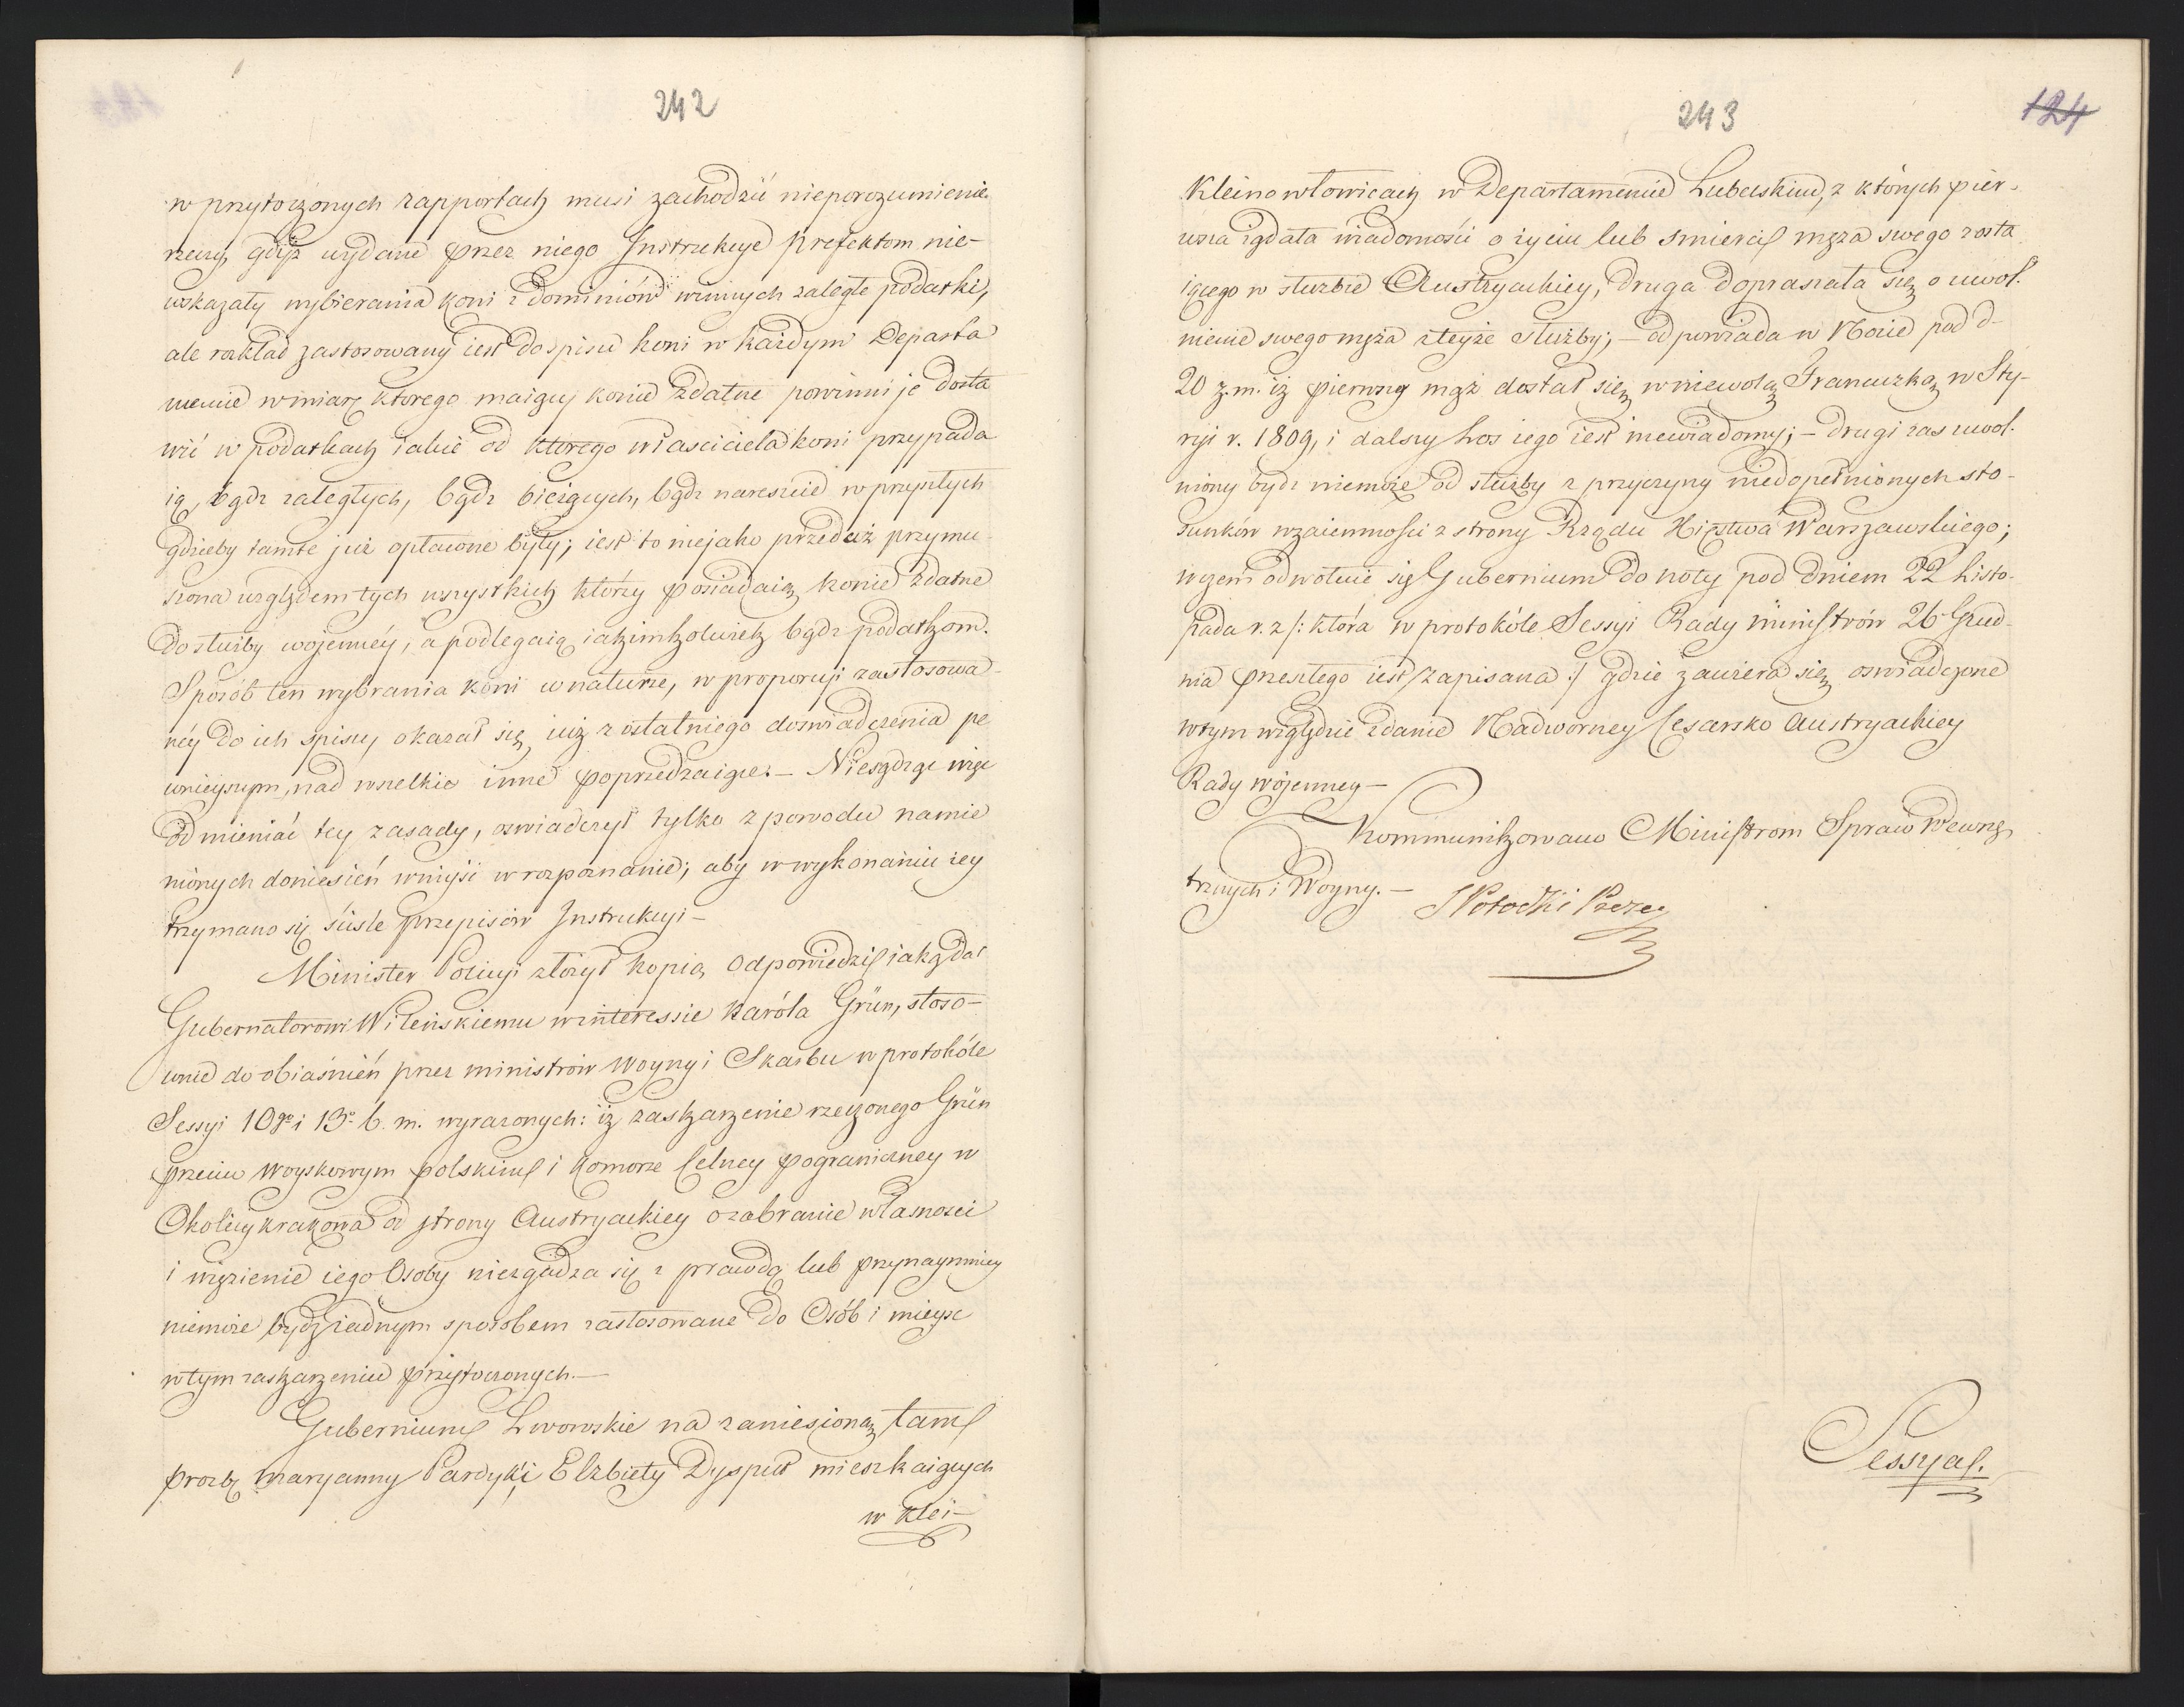 242
w przytoczonych rapportach musi zachodzić nieporozumienie
rzeczy, gdyż wydane przez niego Instrukcye Prefektom nie-
wskazały wybierania koni z Dominiów winnych zaległe podatki,
ale rozkład zastosowany iest do spisu koni w każdym Departa
mencie w miarę ktorego maiący konie zdatne powinni je dosta
wić w podatkach iakie od ktorego właściciela koni przypada
ią, bądz zaległych, bądz bieżących, bądz nareszcie w przyszłych
gdzieby tamte już opłacone były; iest to niejako przedaż przymu
szona względem tych wszystkich którzy posiadaią konie zdatne
do służby wojenney, a podlegaią iakimkolwiek bądz podatkom.
Sposób ten wybrania koni w naturze, w proporcyi zastosowa-
néy do ich spisu, okazał się iuż z ostatniego doswiadczenia pe
wnieyszym, nad wszelkie inne poprzedzaiące. – Niesądząc więc
odmieniać tey zasady, oswiadczył tylko z powodu namie
nionych doniesień wniyść w rozpoznanie; aby w wykonaniu iey
trzymano się ściśle przepisów Instrukcyi –
Minister Policyi złożył kopią odpowiedzi iaką dał
Gubernatorowi Wileńskiemu w interessie Karóla Grün, stoso-
wnie do obiaśnień przez ministrów Woyny i Skarbu w protokóle
Sessyi 10go i 13o b. m. wyrażonych: iż zaskarzenie rzeczonego Grün
przeciw Woyskowym polskim i Komorze Celney pograniczney w
Okolicy Krakowa od strony Austryackiey o zabranie własności
i więzienie iego Osoby niezgadza się z prawdą lub przynaymniey
niemoże bydz żadnym sposobem zastosowane do Osób i mieysc
w tym zaskarzeniu przytoczonych. –
Gubernium Lwowskie na zaniesioną tam
prozbę Maryanny Pardyk i Elzbiety Dysput mieszkaiących
w Klei-
243
124
Kleinowłowicach w Departamencie Lubelskim, z których pier-
wsza żądała wiadomości o życiu lub smierci męża swego zosta
iącego w służbie Austryackiey, druga dopraszała się o uwol.
nienie swego męża z teyże służby; – odpowiada w Nocie pod d-
20 z. m. iż pierwszy mąż dostał się w niewolą Francuzką w Sty-
ryi r. 1809, i dalszy los iego iest niewiadomy; – drugi zas uwol.
niony bydz niemoże od służby z przyczyny niedopełnionych sto-
sunków wzaiemności z strony Rządu Xięstwa Warszawskiego;
w czem odwołuie się Gubernium do noty pod dniem 22 Listo-
pada r. z /: która w protokóle Sessyi Rady Ministrów 26 Grud-
nia przeszłego iest zapisana :/ gdzie zawiera się oswiadczone
w tym względzie zdanie Nadworney Cesarsko Austryackiey
Rady wojenney –
Kommunikowano Ministrom Spraw Wewnę
trznych i Woyny. – S Potocki Prezes
Sessya